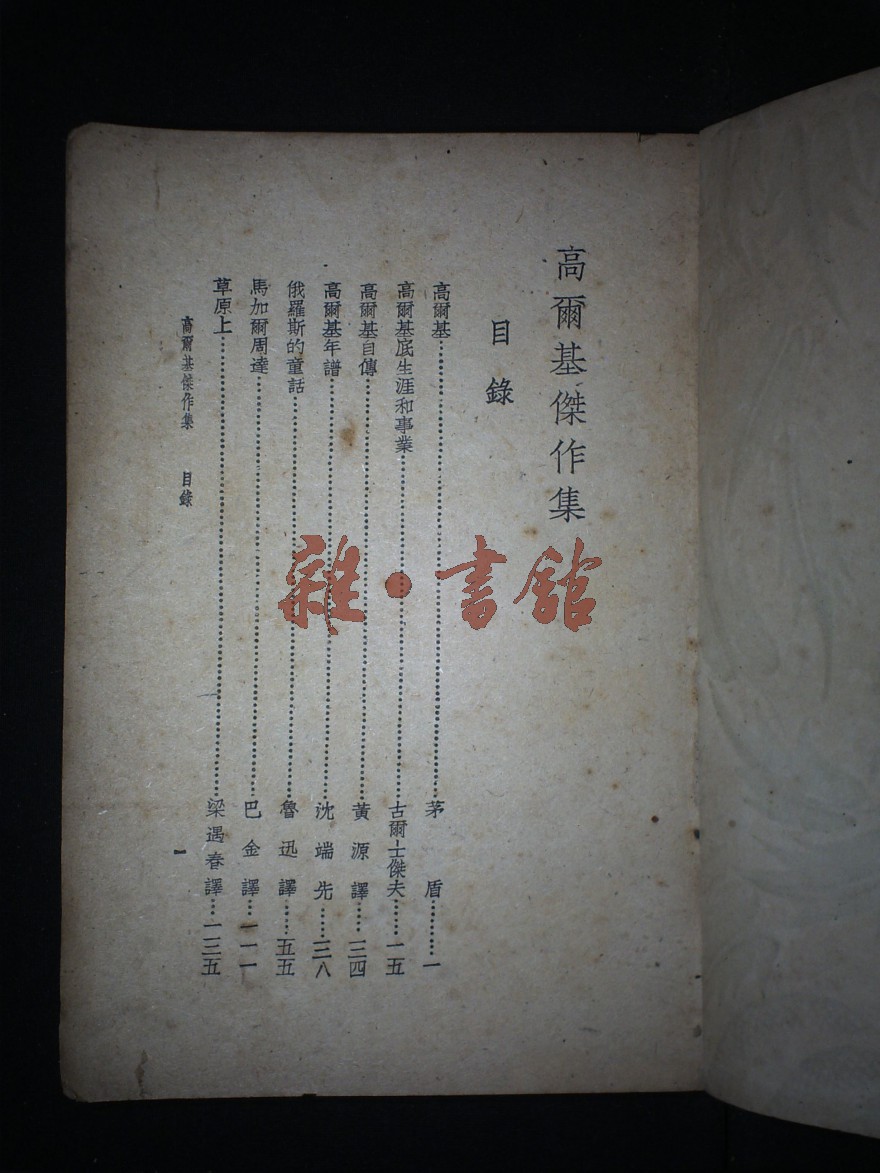 高爾基傑作集
目錄
高爾基……茅盾……一
高爾基底生涯和事業……古爾士傑夫……一五
高爾基自傳……黃源譯……三四
高爾基年譜……沈端先……三八
俄羅斯的童話……魯迅譯……五五
馬加爾周達……巴金譯……一一一
草原上……梁遇春譯……一三五
高爾基傑作集 目錄
一
雜·書館